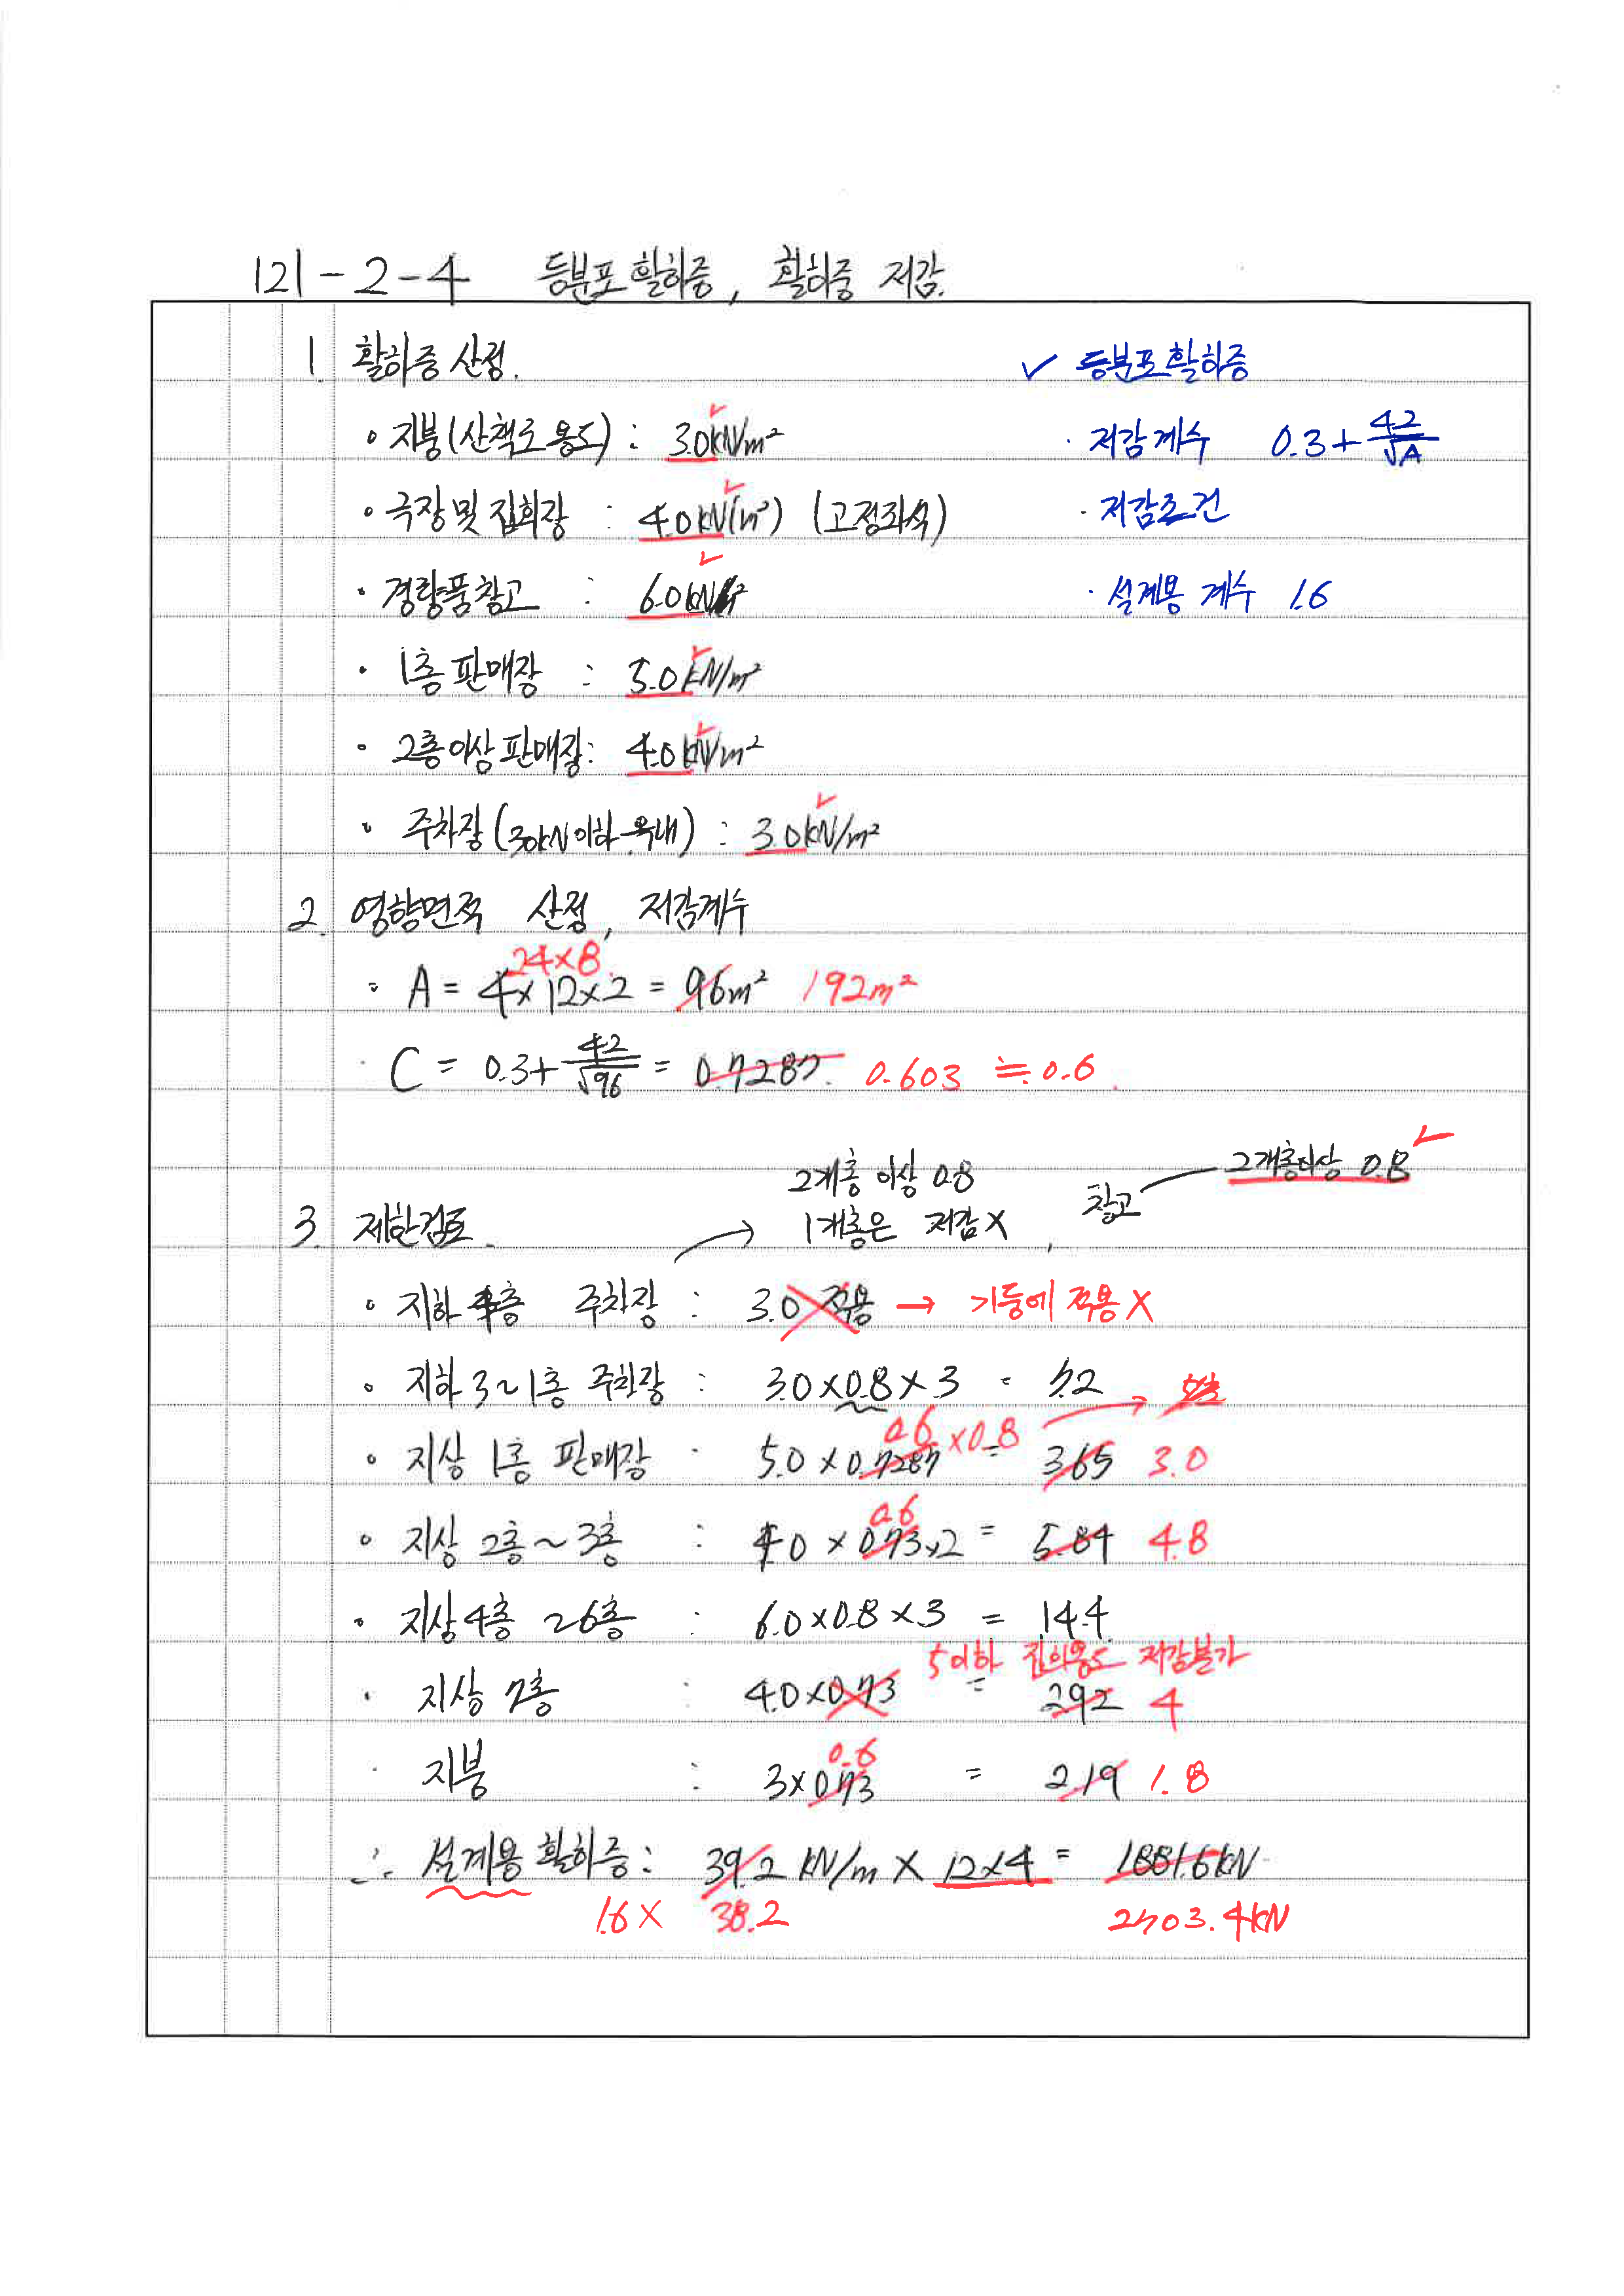 121-2-4 등분포활하중, 활하중 저감.
1. 활하중 산정.
✓ 등분포활하중
• 지붕(산책로 용도) : 3.0kN/m²
· 저감계수 0.3+4.2/√A
• 극장 및 집회장 : 4.0kN(m²) (고정좌석)
· 저감조건
· 경량품창고 : 6.0kN/m²
· 설계용 계수 1.6
· 1층 판매장 : 5.0kN/m²
· 2층이상 판매장: 4.0kN/m²
· 주차장(30kN이하 옥내) : 3.0kN/m²
2. 영향면적 산정, 저감계수
24×8
· A = 4×12×2 = 96m² 192m²
· C = 0.3+4.2/√96 = 0.7287. 0.603 ≒ 0.6
2개층 이상 0.8
창고 2개층이상 0.8
3. 제한검토. → 1개층은 저감X
• 지하 4층 주차장 : 3.0 적용 → 기둥에 적용 X
• 지하 3~1층 주차장 : 3.0×0.8×3 = 7.2
0.6 ×0.8
• 지상 1층 판매장 : 5.0×0.7287 = 3.65 3.0
0.6
• 지상 2층~3층 : 4.0×0.73×2 = 5.84 4.8
• 지상4층~6층 : 6.0×0.8×3 = 14.4
5이하 집회용도 저감불가
· 지상 7층 : 4.0×0.73 = 2.92 4
0.6
· 지붕 : 3×0.73 = 2.19 1.8
∴ 설계용 활하중: 39.2 kN/m × 12×4 = 1881.6kN
1.6× 38.2 2703.4kN